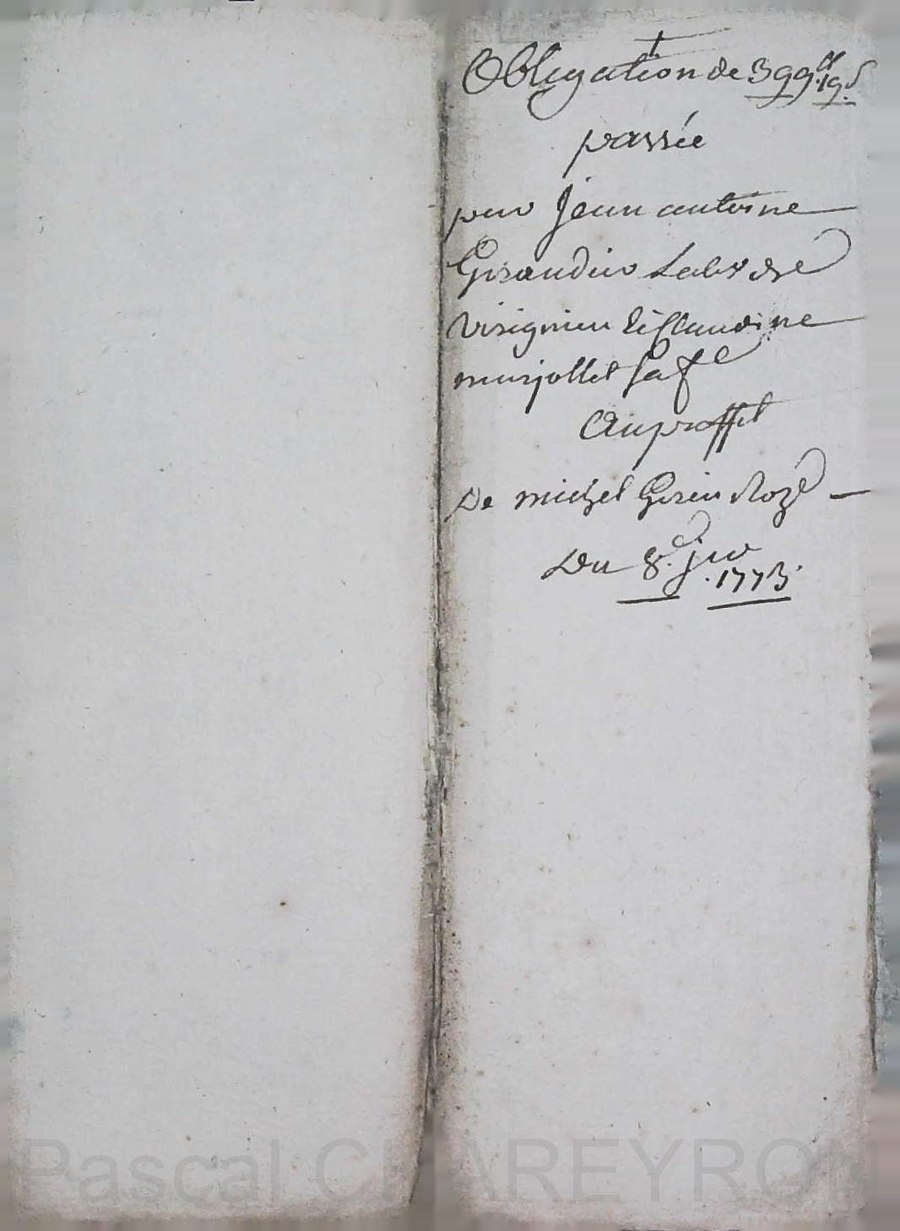 Obligation de 399ll. 19s
passée
par Jean antoine
Giraudin Labr de
Virignieu & Claudine
marjollet sa fe
Au proffit
De michel Girin Rozé
Du 8e. jer
.1773.
Pascal CHAREYRON